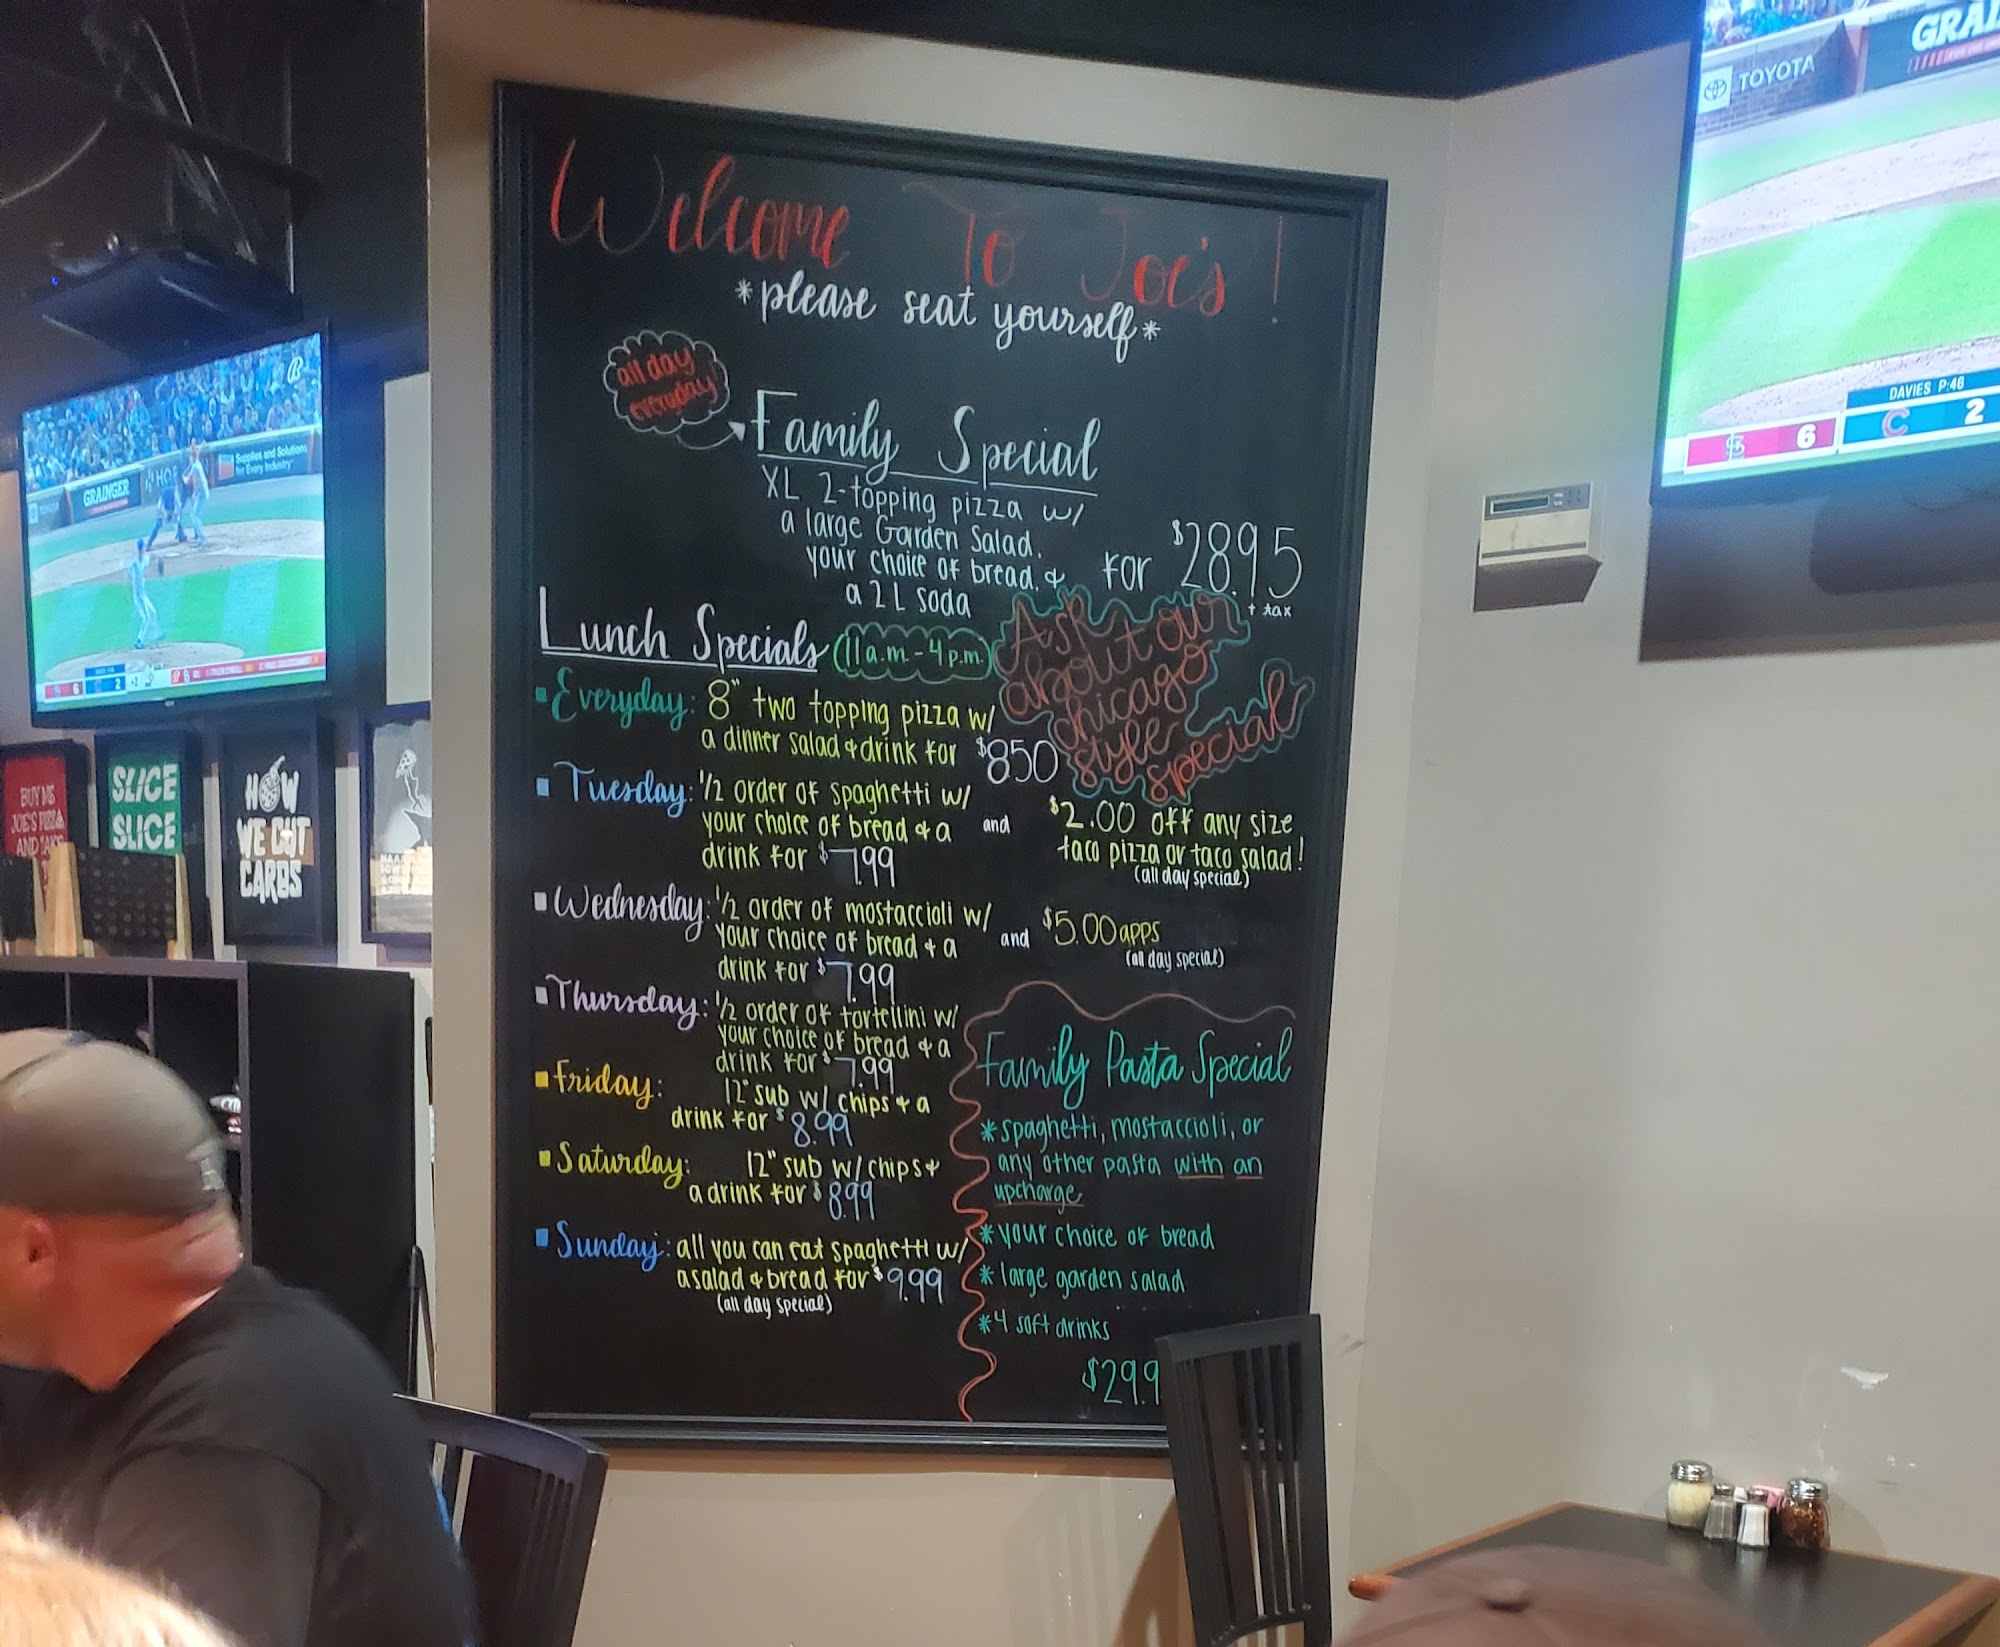 Welcome To Joe's!
*please seat yourself*
all day
everyday
Family Special
XL 2-topping pizza w/
a large Garden Salad.
your choice of bread. &
a 2 L soda
for $28.95
+ tax
Lunch Specials (11a.m.-4p.m.)
Ask
about our
chicago
style
special
Everyday: 8" two topping pizza w/
a dinner salad & drink for $850
Tuesday: 1/2 order of spaghetti w/
your choice of bread & a
drink for $7.99
and
$2.00 off any size
taco pizza or taco salad!
(all day special)
Wednesday: 1/2 order of mostaccioli w/
your choice of bread & a
drink for $7.99
and $5.00 apps
(all day special)
Thursday: 1/2 order of tortellini w/
your choice of bread & a
drink for $7.99
Friday: 12" sub w/ chips & a
drink for $8.99
Saturday: 12" sub w/ chips &
a drink for $8.99
Sunday: all you can eat spaghetti w/
a salad & bread for $9.99
(all day special)
Family Pasta Special
*spaghetti, mostaccioli, or
any other pasta with an
upcharge
*your choice of bread
*large garden salad
*4 soft drinks
$29.9
TOYOTA
DAVIES P:46
6
C 2
GRAINGER
Supplies and Solutions
for Every Industry
6
2
BUY ME
JOE'S PIZZA
AND TAKE
SLICE
SLICE
HOW
WE CUT
CARBS